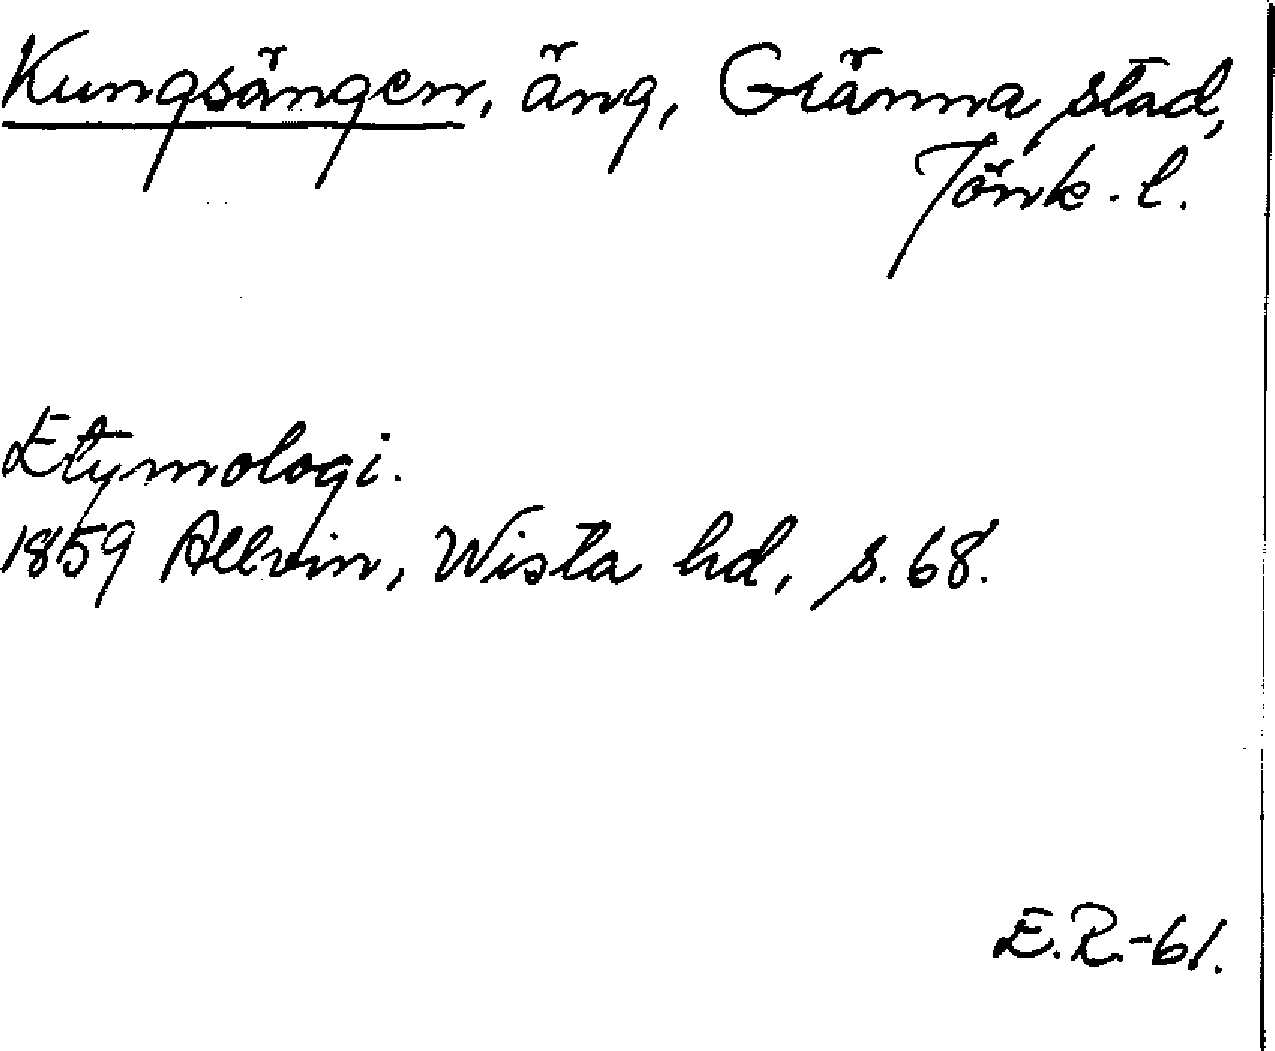 Kungsängen, äng, Gränna stad,
Jönk. l.
Etymologi.
1859 Allvin, Wista hd, s. 68.
E.R.-61.